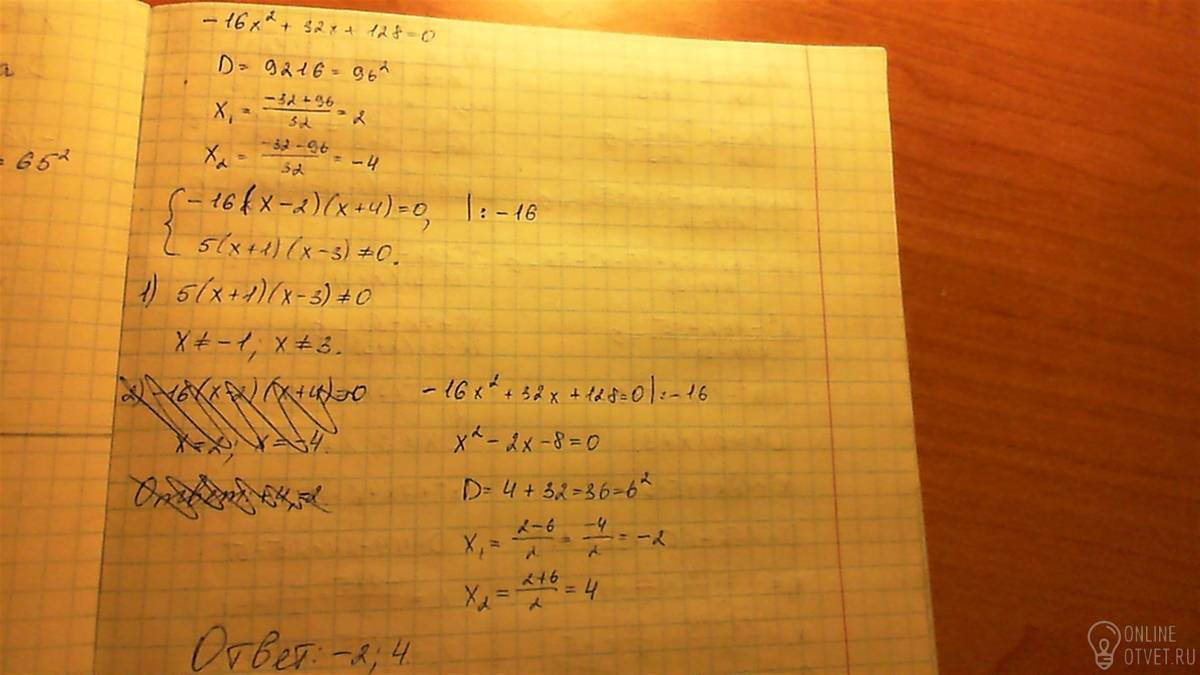 -16x² + 32x + 128 = 0
D = 9216 = 96²
x₁ = (-32+96)/32 = 2
= 65²
x₂ = (-32-96)/32 = -4
{ -16(x-2)(x+4)=0, |: -16
5(x+1)(x-3)≠0.
1) 5(x+1)(x-3)≠0
x≠-1; x≠3.
2) -16(x-2)(x+4)=0
x=2; x=-4.
-16x² + 32x + 128 = 0 |: -16
x² - 2x - 8 = 0
D = 4 + 32 = 36 = 6²
x₁ = (2-6)/2 = -4/2 = -2
x₂ = (2+6)/2 = 4
Ответ: -2; 4.
ONLINE
OTVET.RU